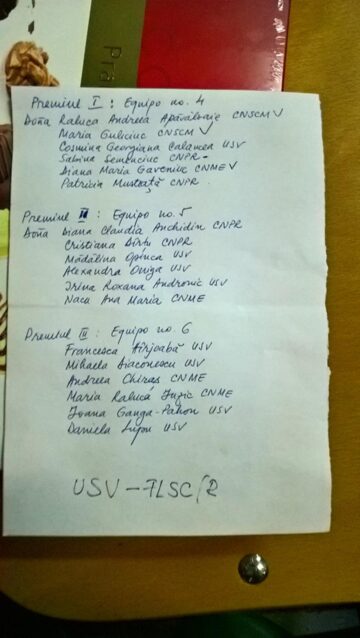 Pră
Premiul I : Equipo no. 4
Doña Raluca Andreea Apăvăloaie CNSCM ✓
Maria Guliciuc CNSCM ✓
Cosmina Georgiana Calancea USV
Sabina Semeniuc CNPR
Diana Maria CNME ✓
Patricia Mustață CNPR
Premiul II : Equipo no. 5
Doña Diana Claudia Anchidin CNPR
Cristiana Dîrtu CNPR
Mădălina Opinca USV
Alexandra Oniga USV
Irina Roxana Andronic USV
Nacu Ana Maria CNME
Premiul III : Equipo no. 6
Francesca USV
Mihaela Diaconescu USV
Andreea Chiraș CNME
Maria Raluca CNME
Ioana Ganga-Păhon USV
Daniela Lupu USV
USV – FLSC/